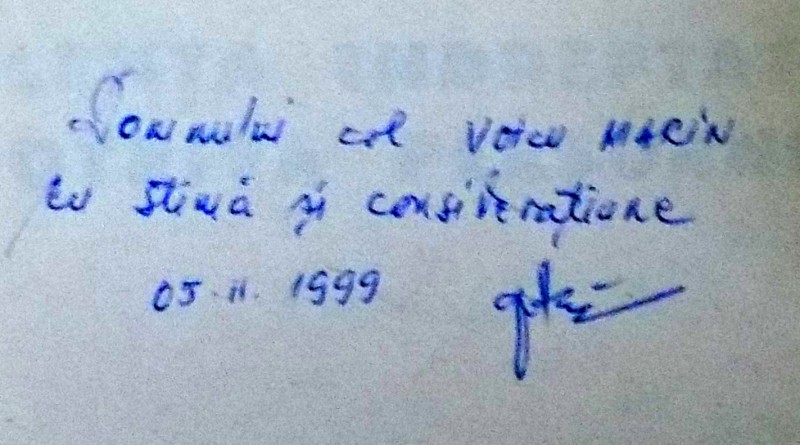 Domnului col Voicu MACIN
cu stimă și considerațiune
05.II.1999